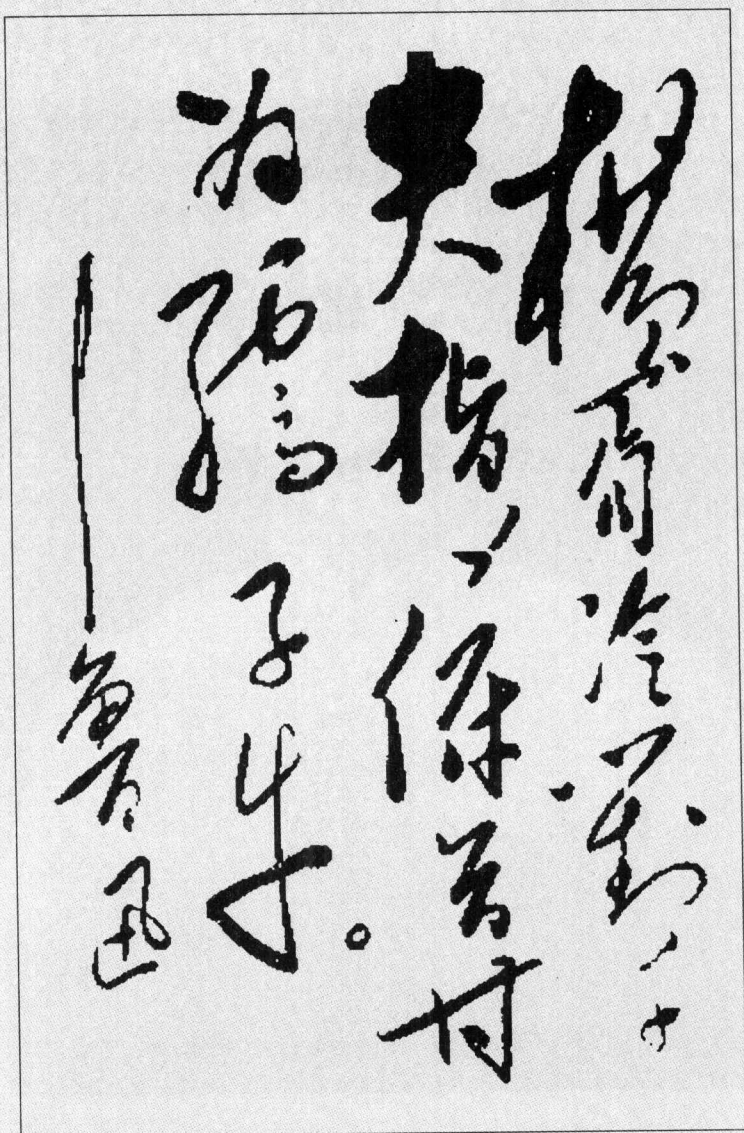 横眉冷對千
夫指,俯首甘
为孺子牛。
——鲁迅